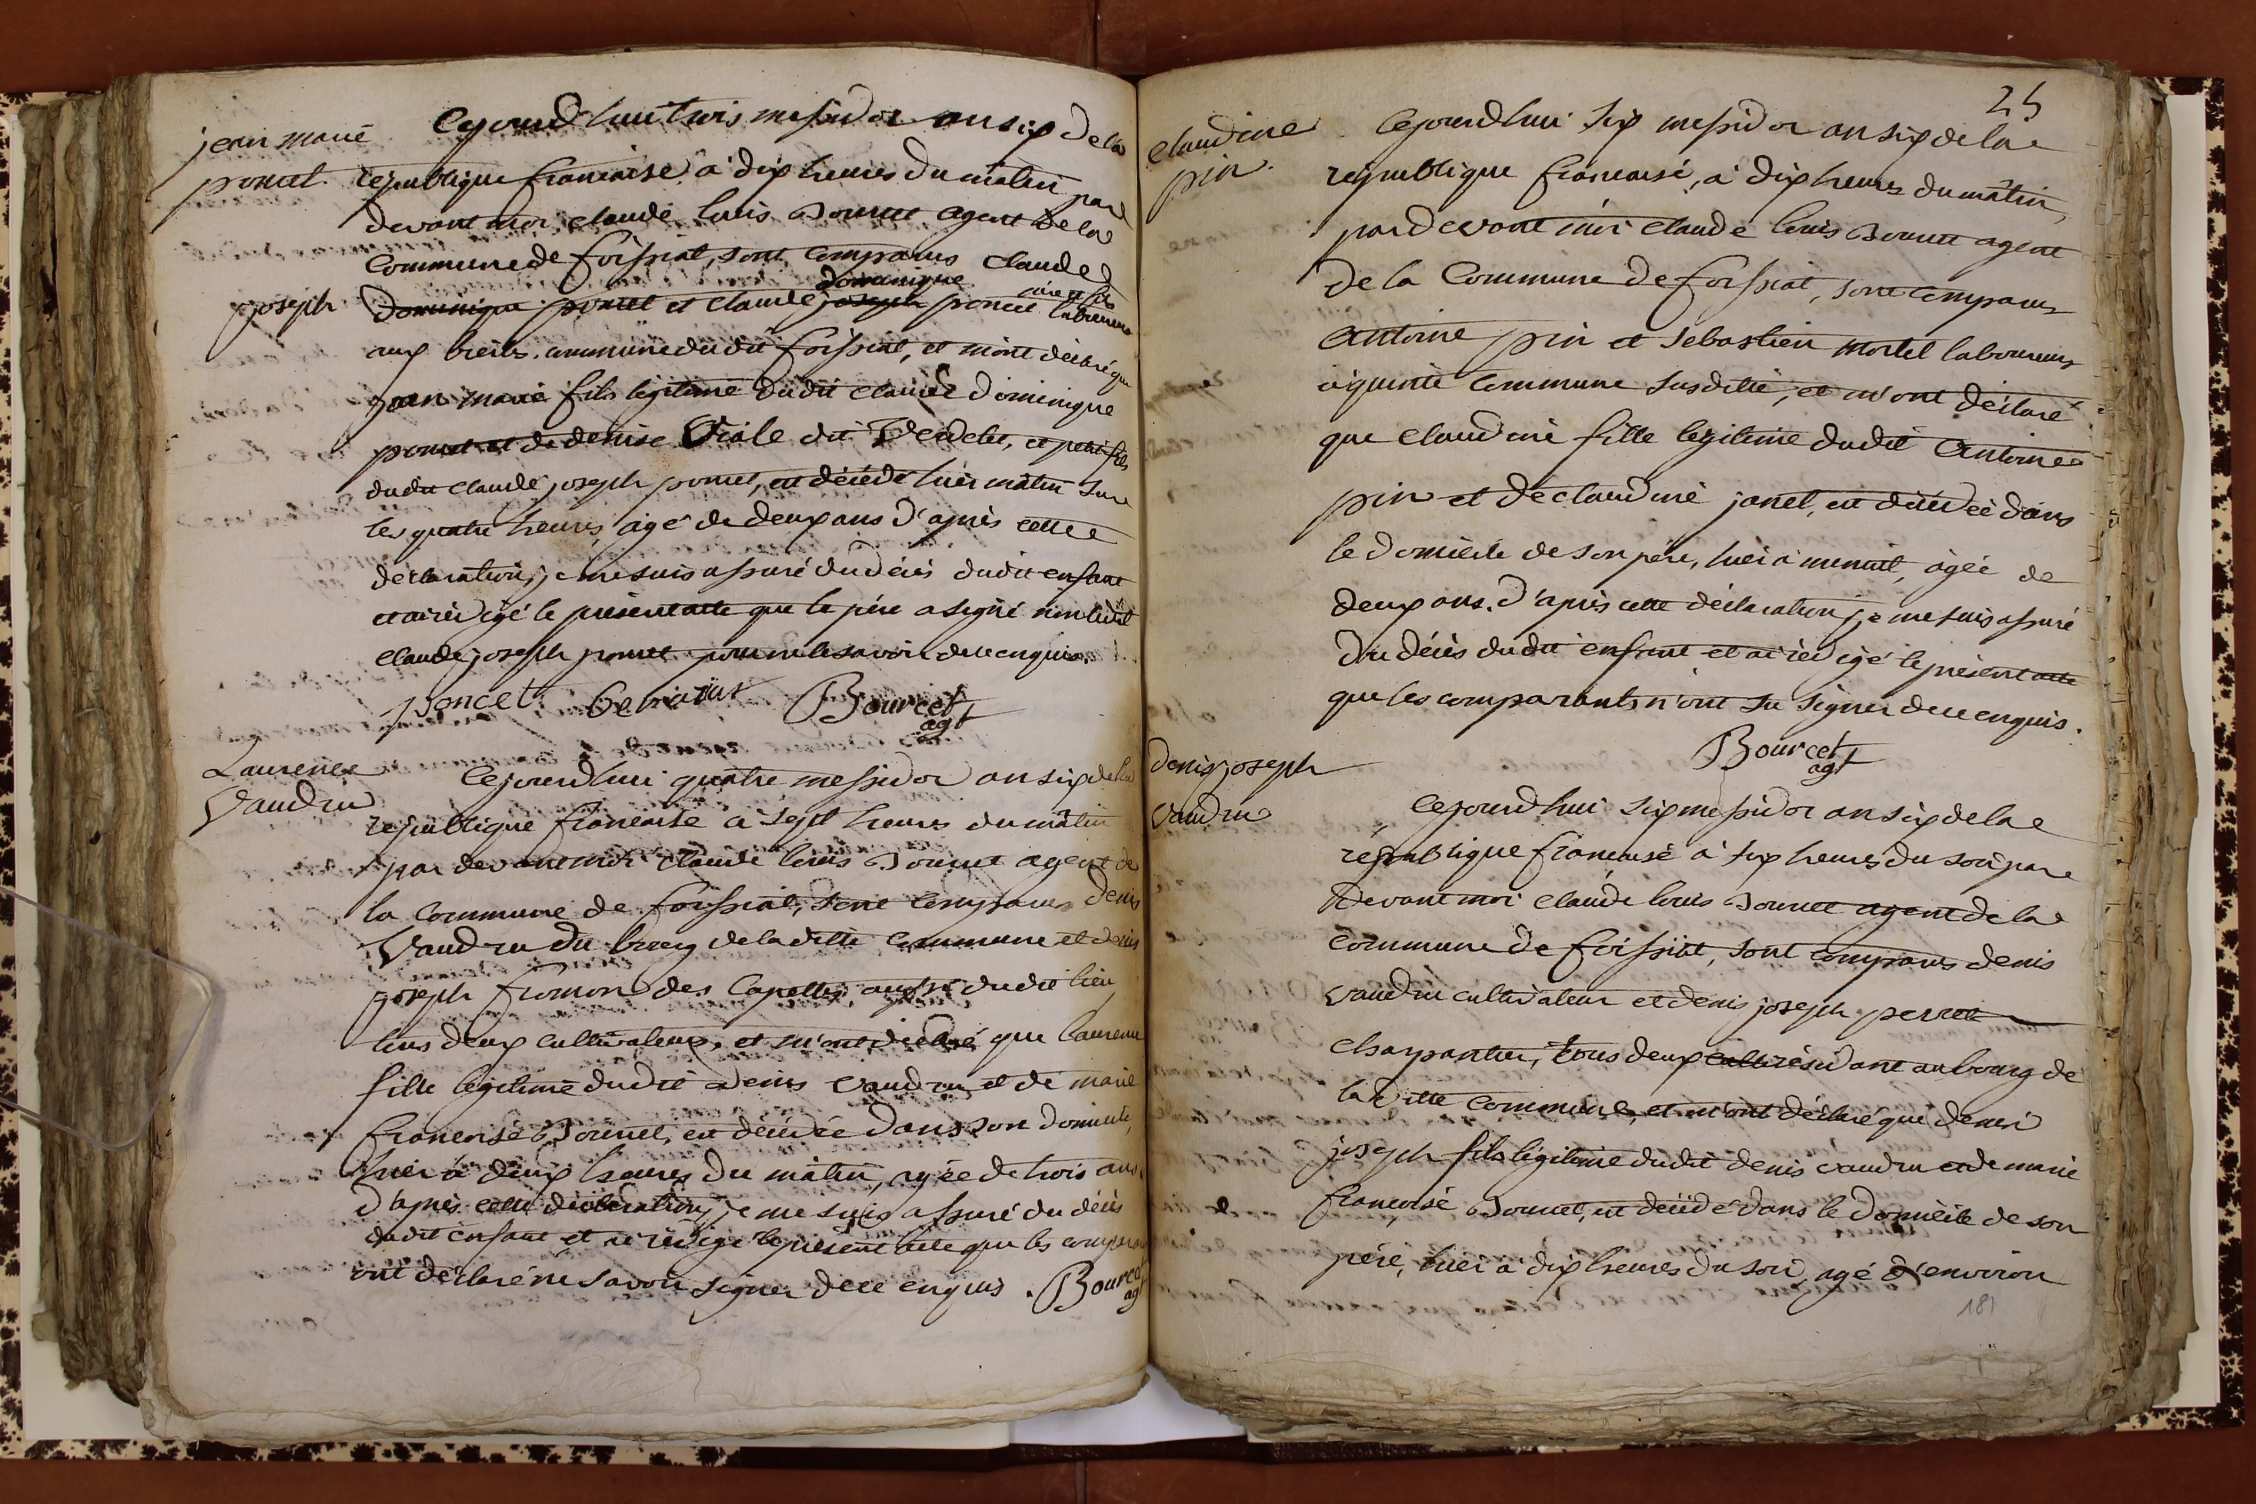 jean marie
poncet
Cejourd'huui trois messidor an six de la
republique francaise à dix heures du matin par
devant moi claude louis Bourcet agent de la
Commune de foissiat, sont comparus claude
joseph
dominique
père et fils
dominique poncet et claude joseph poncet laboureurs
aux commune dudit foissiat, et m'ont déclaré que
jean marie fils légitime dudit claude dominique
poncet et de denise Viale dit Verdelet, et petit fils
dudit claude joseph poncet, est décédé hier matin sur
les quatre heures, agé de deux ans d'après cette
déclaration, je me suis assuré du décés dudit enfant
et ai rédigé le présent acte que le père a signé non ledit
claude joseph poncet pour ne le savoir de ce enquis.
poncet Bourcet
agt
Laurence
Vaudru
Cejourd'hui quatre messidor an six de la
republique francaise à sept heures du matin
par devant moi claude louis Bourcet agent de
la commune de foissiat, sont comparus denis
Vaudru du bourg de la ditte commune et denis
joseph fromon des Capettes aussi dudit lieu
tous deux cultivateurs, et m'ont déclaré que laurence
fille légitime dudit denis vaudru et de marie
francoise Bourcet, est décédée dans son domicile,
hier à deux heures du matin, agée de trois ans.
d'après cette déclaration, je me suis assuré du décès
dudit enfant et ai rédigé le présent acte que les comparants
ont déclaré ne savoir signer de ce enquis. Bourcet
agt
25
claudine
pin
Cejourd'hui six messidor an six de la
republique francaise, à dix heures du matin,
par devant moi claude louis Bourcet agent
de la Commune de foissiat, sont comparus
antoine pin et sebastien mortel laboureurs
à commune susditte, et m'ont déclaré
que claudine fille légitime dudit antoine
pin et de claudine janet, est décédée dans
le domicile de son père, hier à minuit, agée de
deux ans. d'après cette déclaration, je me suis assuré
du décès dudit enfant et ai rédigé le présent acte
que les comparants n'ont su signer de ce enquis.
Bourcet
agt
denis joseph
vaudru
Cejourd'hui six messidor an six de la
republique francaise à six heures du soir par
devant moi claude louis Bourcet agent de la
commune de foissiat, sont comparus denis
vaudru cultivateur et denis joseph perret
charpantier, tous deux résidant au bourg de
la ditte commune, et m'ont déclaré que denis
joseph fils légitime dudit denis vaudru et de marie
francoise Bourcet, est décédé dans le domicile de son
père, hier à dix heures du soir, agé d'environ
181